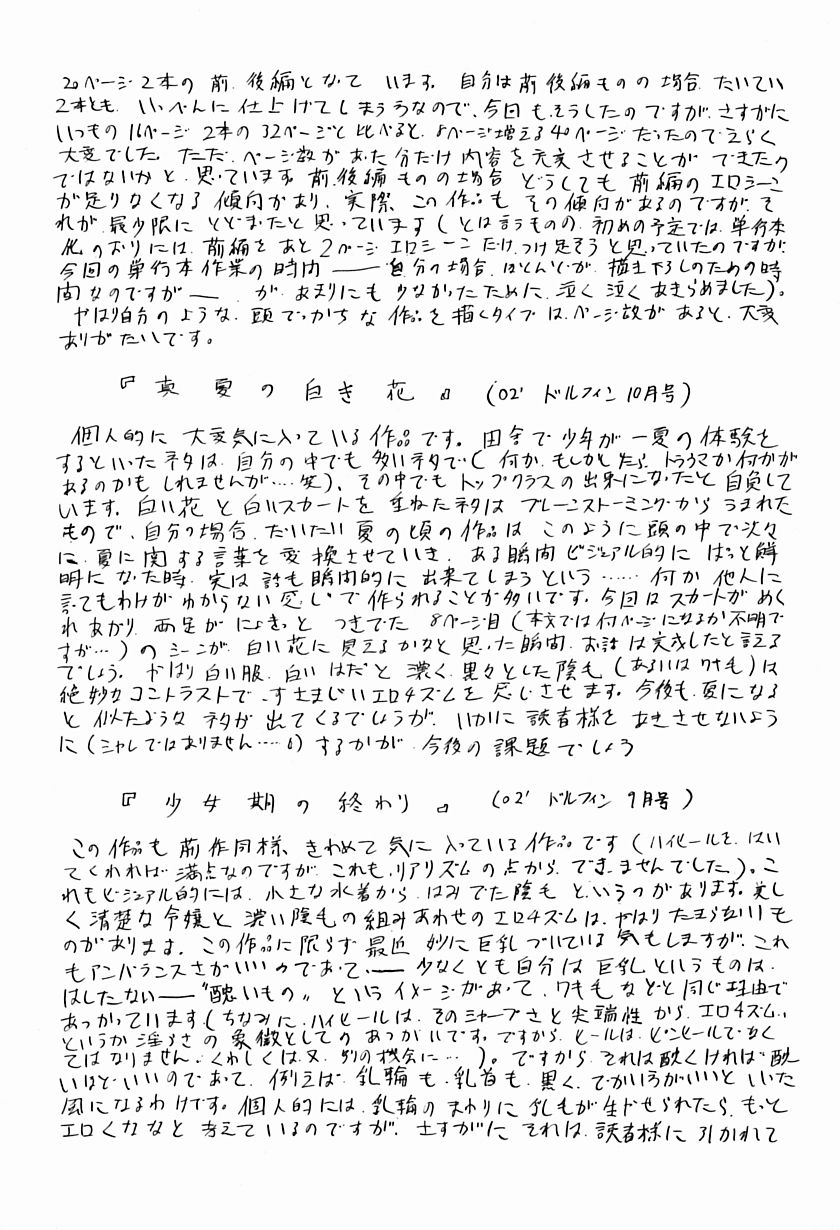 20ページ2本の前、後編となって います。自分は前後編ものの場合、たいてい
2本とも、いっぺんに仕上げてしまううなので、今回も、そうしたのですが、さすがに
いつもの16ページ 2本の32ページと比べると、8ページ増える40ページだったのでえらく
大変でした。ただ、ページ数があった分だけ内容を充実させることが できたの
ではないかと、思っています。前、後編ものの場合 どうしても 前編のエロシーン
が足りなくなる 傾向があり、実際、この作品も その傾向があるのですが、そ
れが、最少限に とどまったと思っています(とは言うものの、初めの予定では、単行本
化のおりには、前編をあと2ページエロシーンだけ、つけ足そうと思っていたのですが、
今回の単行本作業の時間――自分の場合、ほとんどが、描き下ろしのための時
間なのですが―― が、あまりにも 少なかったために、泣く泣くあきらめました)。
やはり自分のような、頭でっかちな 作品を描くタイプは、ページ数が あると、大変
ありがたいです。
『真夏の白き花』(02' ドルフィン10月号)
個人的に 大変気に入っている作品です。田舎で少年が一夏の体験を
するといったネタは、自分の中でも 多いネタで(何か、もしかしたら、トラウマか何かが
あるのかも しれませんが‥‥笑)、その中でもトップクラスの出来になったと自負して
います。白い花と白いスカートを 重ねたネタは ブレーンストーミングから うまれた
もので、自分の場合、だいたい 夏の頃の作品は このように頭の中で次々
に、夏に関する言葉を変換させていき、ある瞬間ビジュアル的に はっと解
明になった時、実は話も瞬間的に 出来てしまうという‥‥‥ 何か 他人に
言ってもわけが わからない感じで作られることが多いです。今回はスカートがめく
れあがり、両足が にょきっと つきでた 8ページ目(本文では何ページになるか不明で
すが…)のシーンが、白い花に見えるかなと思った瞬間、お話は完成したと言える
でしょう。やはり白い服、白いはだと 濃く、黒々とした陰毛(あるいはワキ毛)は
絶妙なコントラストで、すさまじいエロチズムを感じさせます。今後も、夏になる
と 似たような ネタが 出てくるでしょうが、いかに 読者様を あきさせないよう
に(シャレではありません‥‥)するかが、今後の課題でしょう
『少女期の終わり』(02' ドルフィン9月号)
この作品も 前作同様、きわめて気に入っている作品です(ハイヒールを、はい
てくれれば 満点なのですが、これも、リアリズムの点から、できませんでした)。こ
れもビジュアル的には、小さな水着から、はみでた陰毛というのがあります。美し
く清楚な令嬢と 濃い陰毛の組みあわせのエロチズムは、やはり たまらないも
のがあります。この作品に限らず最近 妙に巨乳づいている気もしますが、これ
もアンバランスさがいいのであって、――少なくとも自分は巨乳というものは、
はしたない――“醜いもの〟というイメージがあって、ワキ毛などと同じ理由で
あつかっています(ちなみに、ハイヒールは、そのシャープさと尖端性から、エロチズム、
というか淫らさの象徴としてのあつかいです。ですから、ヒールは、ピンヒールでなく
てはなりません。くわしくは、又、別の機会に…)。ですから、それは醜くければ醜
いほどいいのであって、例えば、乳輪も、乳首も、黒く、でかいうがいいといった
風になるわけです。個人的には、乳輪のまわりに 乳毛が生やせられたら、もっと
エロくなるなと 考えているのですが、さすがに それは、読者様に引かれて